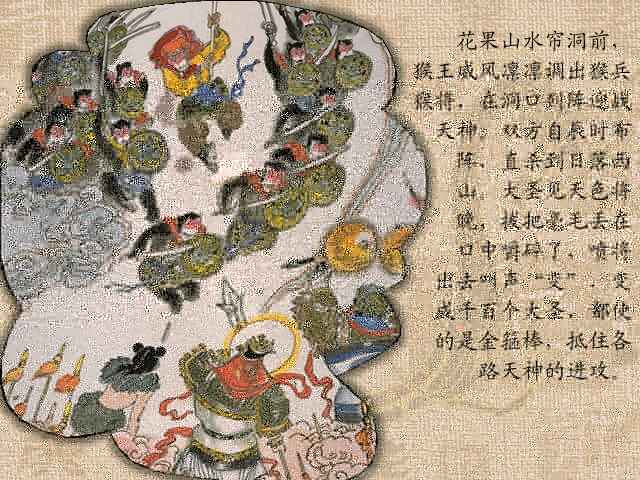 花果山水帘洞前，
猴王威风凛凛调出猴兵
猴将，在洞口列阵迎战
天神。双方自辰时布
阵、直杀到日落西
山。大圣见天色将
晚，拔把毫毛丢在
口中嚼碎了，喷将
出去叫声“变”，变
成千百个大圣，都使
的是金箍棒，抵住各
路天神的进攻。